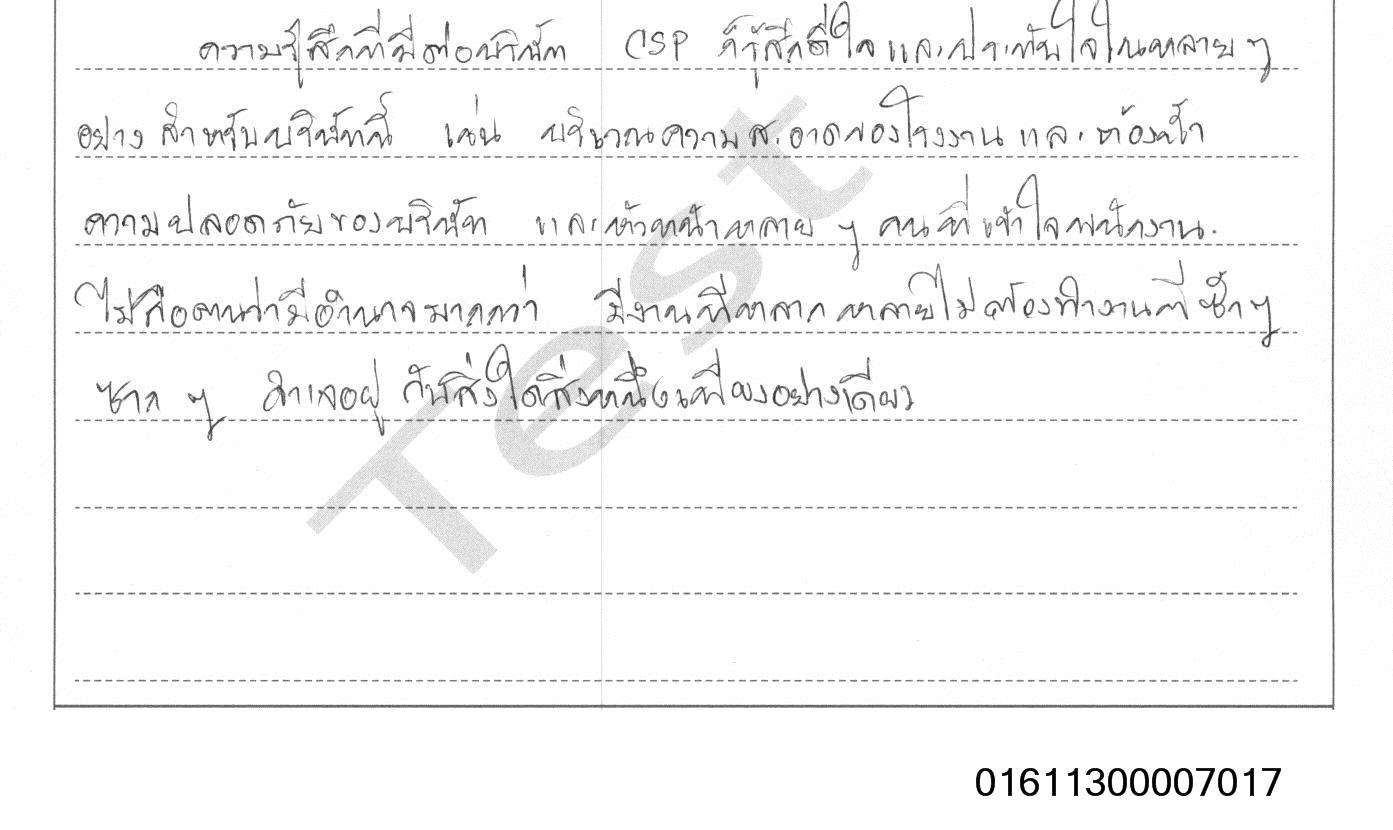 ความรู้สึกที่มีต่อบริษัท CSP ก็รู้สึกดีใจและประทับใจในหลาย ๆ
อย่าง สำหรับบริษัทนี้ เช่น บริเวณความสะอาดของโรงงาน และห้องน้ำ
ความปลอดภัยของบริษัท และหัวหน้าหลาย ๆ คนที่เข้าใจพนักงาน.
ไม่ถือตนว่ามีอำนาจมากกว่า มีงานที่หลากหลายไม่ต้องทำงานที่ซ้ำๆ
ซาก ๆ จำเจอยู่ กับสิ่งใดสิ่งหนึ่งเพียงอย่างเดียว
Test
01611300007017